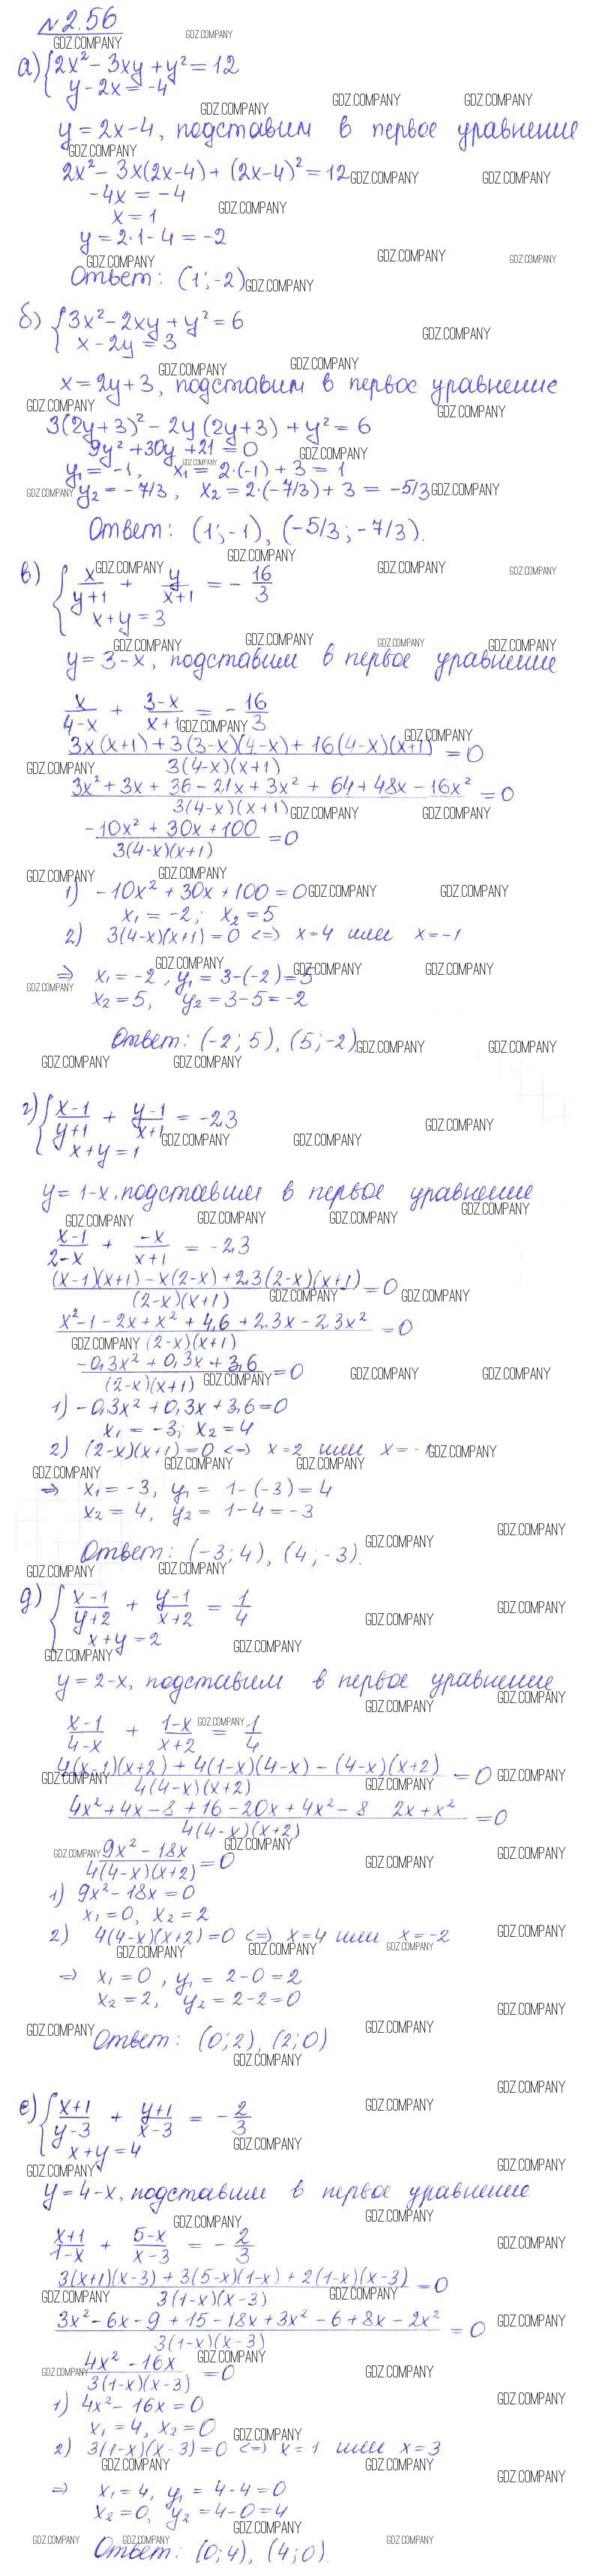 №2.56
а) { 2x² - 3xy + y² = 12
y - 2x = -4
y = 2x-4, подставим в первое уравнение
2x² - 3x(2x-4) + (2x-4)² = 12
-4x = -4
x = 1
y = 2·1 - 4 = -2
Ответ: (1; -2)
б) { 3x² - 2xy + y² = 6
x - 2y = 3
x = 2y + 3, подставим в первое уравнение
3(2y+3)² - 2y(2y+3) + y² = 6
9y² + 30y + 21 = 0
y₁ = -1, x₁ = 2·(-1) + 3 = 1
y₂ = -7/3, x₂ = 2·(-7/3) + 3 = -5/3
Ответ: (1; -1), (-5/3; -7/3).
в) { x/(y+1) + y/(x+1) = -16/3
x + y = 3
y = 3-x, подставим в первое уравнение
x/(4-x) + (3-x)/(x+1) = -16/3
(3x(x+1) + 3(3-x)(4-x) + 16(4-x)(x+1))/(3(4-x)(x+1)) = 0
(3x² + 3x + 36 - 21x + 3x² + 64 + 48x - 16x²)/(3(4-x)(x+1)) = 0
(-10x² + 30x + 100)/(3(4-x)(x+1)) = 0
1) -10x² + 30x + 100 = 0
x₁ = -2; x₂ = 5
2) 3(4-x)(x+1) = 0 <=> x = 4 или x = -1
=> x₁ = -2, y₁ = 3-(-2) = 5
x₂ = 5, y₂ = 3-5 = -2
Ответ: (-2; 5), (5; -2)
г) { (x-1)/(y+1) + (y-1)/(x+1) = -2,3
x + y = 1
y = 1-x, подставим в первое уравнение
(x-1)/(2-x) + (-x)/(x+1) = -2,3
((x-1)(x+1) - x(2-x) + 2,3(2-x)(x+1))/((2-x)(x+1)) = 0
(x² - 1 - 2x + x² + 4,6 + 2,3x - 2,3x²)/((2-x)(x+1)) = 0
(-0,3x² + 0,3x + 3,6)/((2-x)(x+1)) = 0
1) -0,3x² + 0,3x + 3,6 = 0
x₁ = -3; x₂ = 4
2) (2-x)(x+1) = 0 <=> x = 2 или x = -1
=> x₁ = -3, y₁ = 1-(-3) = 4
x₂ = 4, y₂ = 1-4 = -3
Ответ: (-3; 4), (4; -3).
д) { (x-1)/(y+2) + (y-1)/(x+2) = 1/4
x + y = 2
y = 2-x, подставим в первое уравнение
(x-1)/(4-x) + (1-x)/(x+2) = 1/4
(4(x-1)(x+2) + 4(1-x)(4-x) - (4-x)(x+2))/(4(4-x)(x+2)) = 0
(4x² + 4x - 8 + 16 - 20x + 4x² - 8 2x + x²)/(4(4-x)(x+2)) = 0
(9x² - 18x)/(4(4-x)(x+2)) = 0
1) 9x² - 18x = 0
x₁ = 0, x₂ = 2
2) 4(4-x)(x+2) = 0 <=> x = 4 или x = -2
=> x₁ = 0, y₁ = 2-0 = 2
x₂ = 2, y₂ = 2-2 = 0
Ответ: (0; 2), (2; 0)
е) { (x+1)/(y-3) + (y+1)/(x-3) = -2/3
x + y = 4
y = 4-x, подставим в первое уравнение
(x+1)/(1-x) + (5-x)/(x-3) = -2/3
(3(x+1)(x-3) + 3(5-x)(1-x) + 2(1-x)(x-3))/(3(1-x)(x-3)) = 0
(3x² - 6x - 9 + 15 - 18x + 3x² - 6 + 8x - 2x²)/(3(1-x)(x-3)) = 0
(4x² - 16x)/(3(1-x)(x-3)) = 0
1) 4x² - 16x = 0
x₁ = 4, x₂ = 0
2) 3(1-x)(x-3) = 0 <=> x = 1 или x = 3
=> x₁ = 4, y₁ = 4-4 = 0
x₂ = 0, y₂ = 4-0 = 4
Ответ: (0; 4), (4; 0).
GDZ.COMPANY